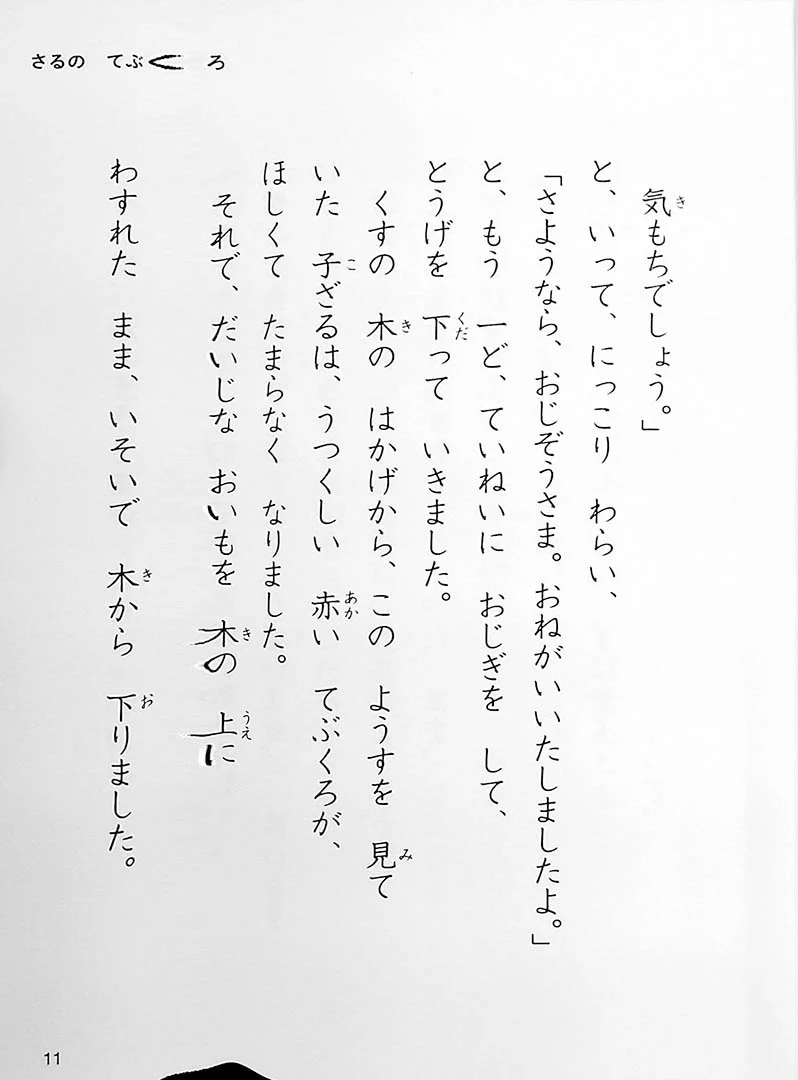 さるの　てぶくろ
気もちでしょう。」
と、いって、にっこり　わらい、
「さようなら、おじぞうさま。おねがいいたしましたよ。」
と、もう　一ど、ていねいに　おじぎを　して、
とうげを　下って　いきました。
くすの　木の　はかげから、この　ようすを　見て
いた　子ざるは、うつくしい　赤い　てぶくろが、
ほしくて　たまらなく　なりました。
それで、だいじな　おいもを　木の　上に
わすれた　まま、いそいで　木から　下りました。
11